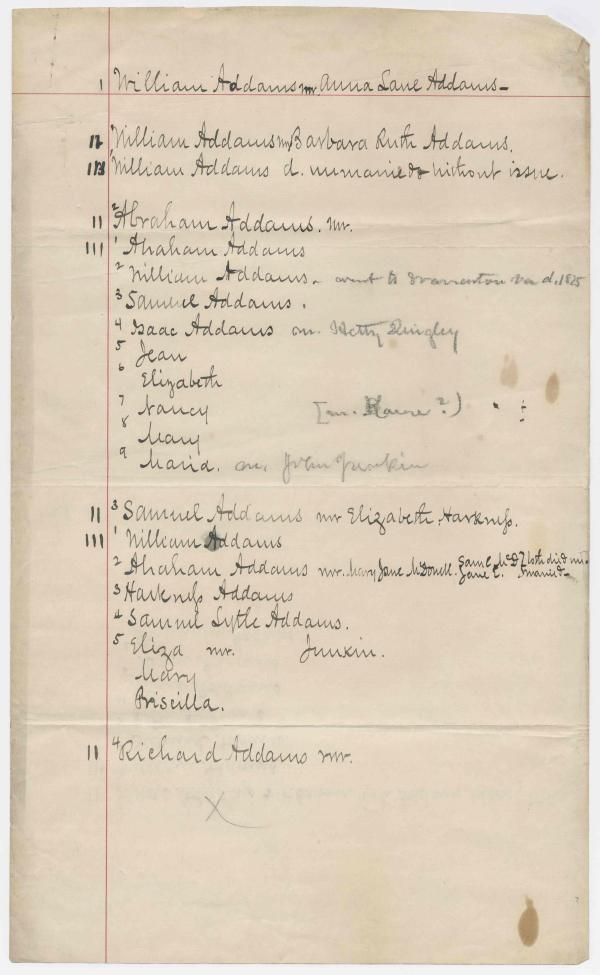 1 William Addams mr. Anna Lane Addams -
12 William Addams mr Barbara Ruth Addams.
William Addams d. unmarried & without issue.
II 2 Abraham Addams. mr.
III 1 Abraham Addams
2 William Addams - went to Warrenton Va d. 1825
3 Samuel Addams.
4 Isaac Addams m. Hetty Quigley
5 Jean
6 Elizabeth
7 Nancy [m. ?)
8 Mary
9 Maria. m. John Junkin
II 3 Samuel Addams mr Elizabeth Harkness.
III 1 William Addams
2 Abraham Addams mr. Mary Jane McDonell. Saml McD. } both died un-
Jane E. married-
3 Harkness Addams
4 Samuel Lytle Addams.
5 Eliza mr. Junkin.
Mary
Priscilla.
II 4 Richard Addams mr.
X